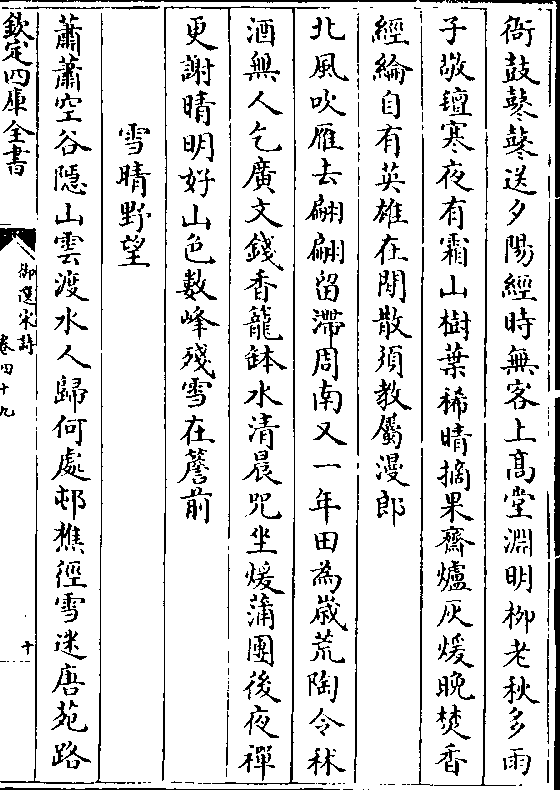 衙鼓鼕鼕送夕陽經時無客上高堂淵明柳老秋多雨
子敬氊寒夜有霜山樹葉稀晴摘果齋爐灰煖晚焚香
經綸自有英雄在閒散須教屬漫郎
北風吹雁去翩翩留滯周南又一年田為歲荒陶令秫
酒無人乞廣文錢香籠缽水清晨咒坐煖蒲團後夜禪
更謝晴明好山色數峰殘雪在簷前
雪晴野望
蕭蕭空谷隠山雲渡水人歸何處邨樵徑雪迷唐苑路
欽定四庫全書
御選宋詩
卷四十九
十